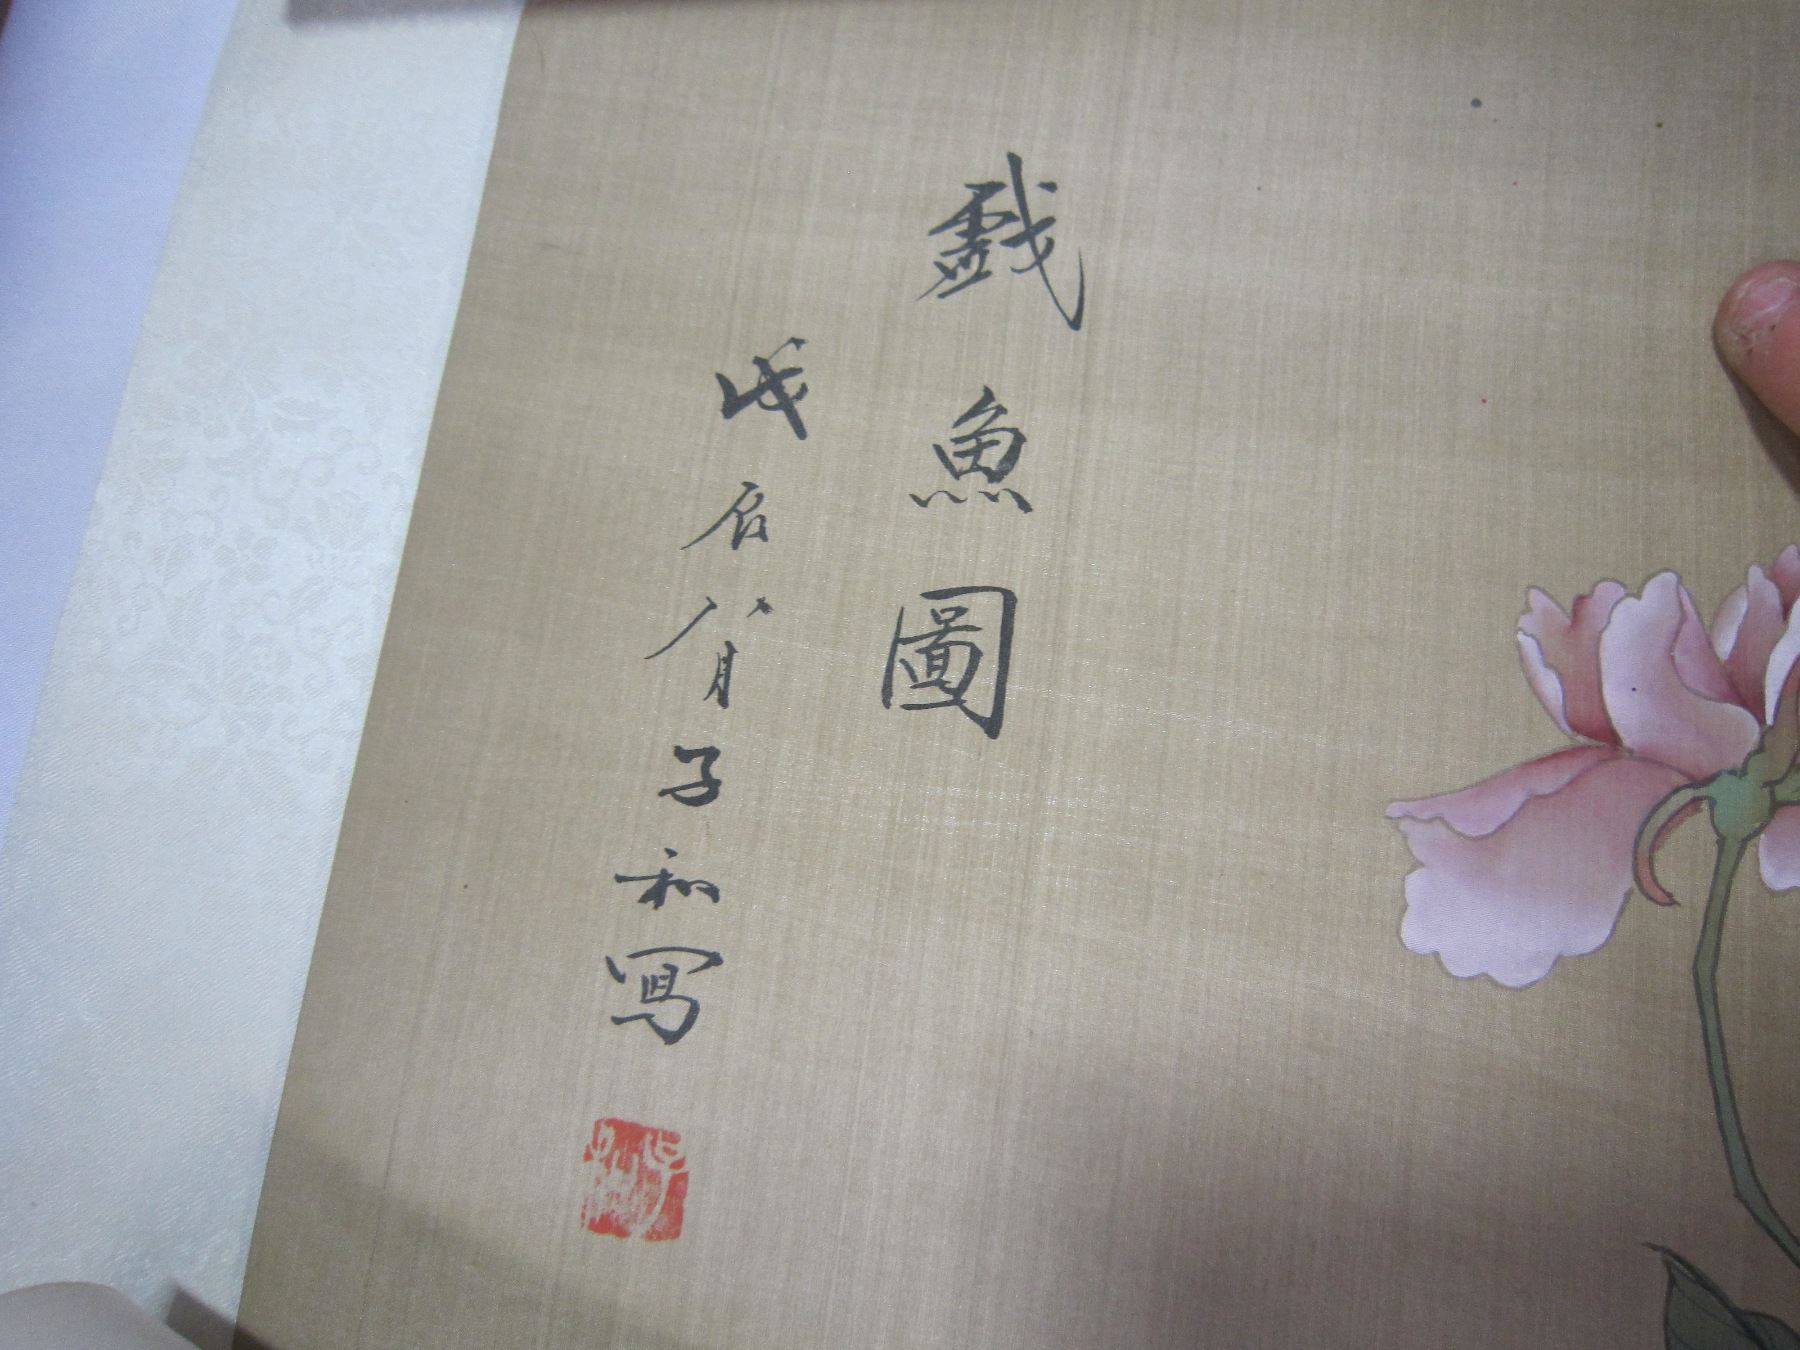 戲魚圖
戊辰八月子和寫